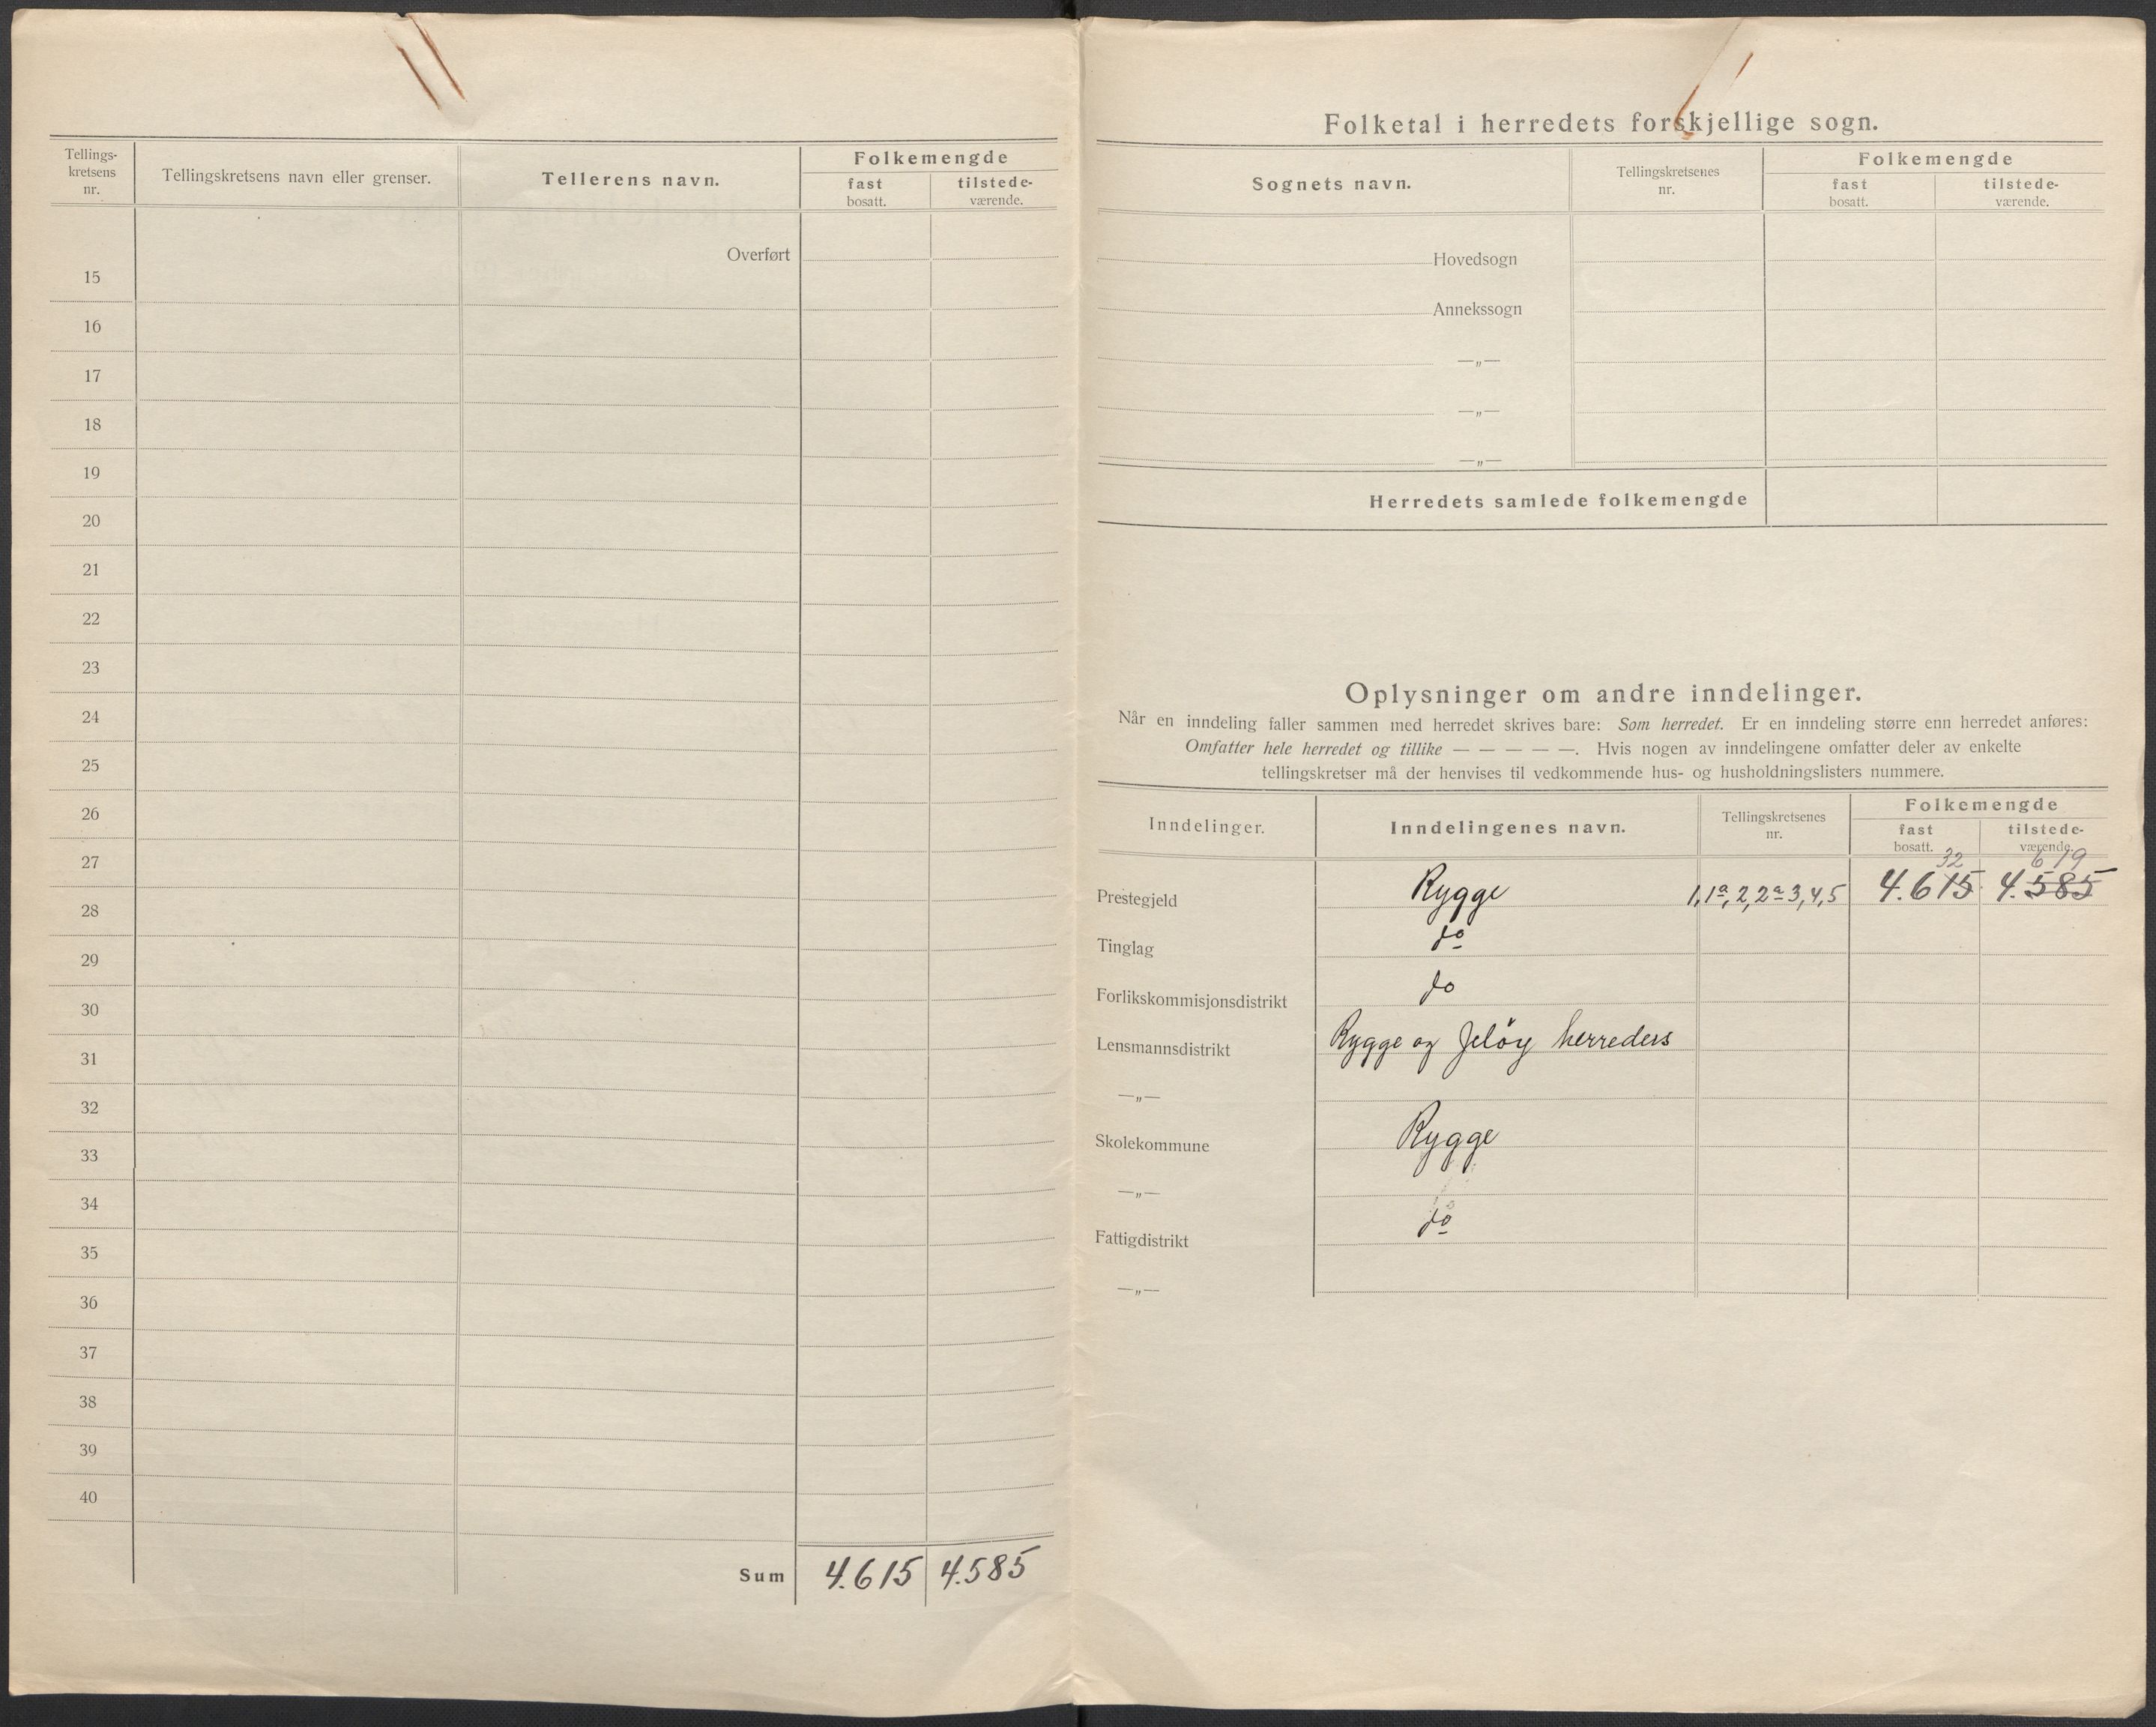 Tellings-
kretsens
nr.
Tellingskretsens navn eller grenser.
Tellerens navn.
Folkemengde
fast
bosatt.
tilstede-
værende.
Overført
15
16
17
18
19
20
21
22
23
24
25
26
27
28
29
30
31
32
33
34
35
36
37
38
39
40
Sum 4.615 4.585
Folketal i herredets forskjellige sogn.
Sognets navn.
Tellingskretsenes
nr.
Folkemengde
fast
bosatt.
tilstede-
værende.
Hovedsogn
Annekssogn
—„—
—„—
—„—
Herredets samlede folkemengde
Oplysninger om andre inndelinger.
Når en inndeling faller sammen med herredet skrives bare: Som herredet. Er en inndeling større enn herredet anføres:
Omfatter hele herredet og tillike — — — — —. Hvis nogen av inndelingene omfatter deler av enkelte
tellingskretser må der henvises til vedkommende hus- og husholdningslisters nummere.
Inndelinger.
Inndelingenes navn.
Tellingskretsenes
nr.
Folkemengde
fast
bosatt.
tilstede-
værende.
32 619
Prestegjeld Rygge 1,1a,2,2a3,4,5 4.615 4.585
Tinglag do
Forlikskommisjonsdistrikt do
Lensmannsdistrikt Rygge og Jeløy herreders
—„—
Skolekommune Rygge
—„—
Fattigdistrikt do
—„—